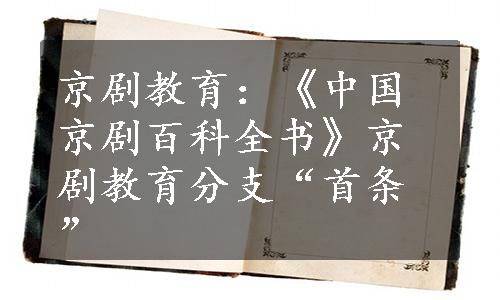 京剧教育：《中国
京剧百科全书》京
剧教育分支“首条
”